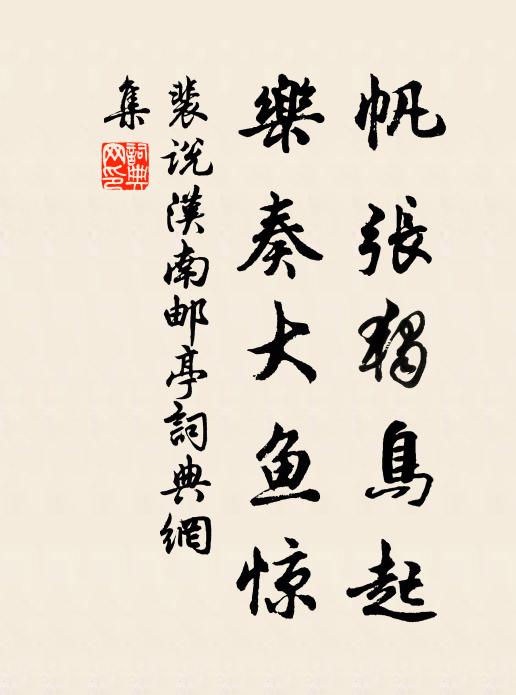 帆張獨鳥起
樂奏大鱼惊
裴说漢南邮亭詞典網
集
詞典網印